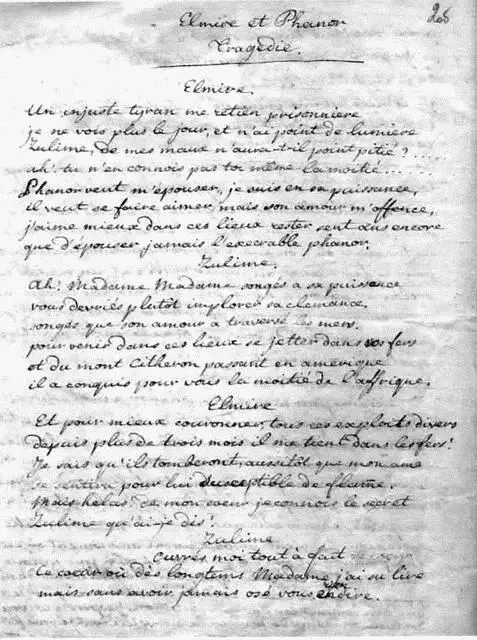 Elmire et Phanor
Tragedie.
Elmire.
Un injuste tyran me retien prisonniere
je ne vois plus le jour, et n'ai point de lumiere
Zulime, de mes maux n'aura-t-il point pitié? .....
ah! tu n'en connois pas toi même la moitié ...
Phanor veut m'epouser, je suis en sa puissance,
il veut se faire aimer, mais son amour m'offence,
j'aime mieux dans ces lieux rester sent ans encore
que d'épouser jamais l'execrable phanor.
Zulime.
Ah! Madame Madame songés a sa puissance
vous devriés plutôt implorer sa clemance.
songés que son amour a traversé les mers.
pour venir dans ces lieux se jetter dans vos fers
et du mont Citheron passant en amérique
il a conquis pour vous la moitié de l'affrique.
Elmire
Et pour mieux couronner, tous ces exploits divers
depuis plus de trois mois il me tient dans les fers!
Je sais qu'ils tomberont, aussitôt que mon ame
se sentira pour lui susceptible de flame.
Mais helas! de mon coeur je connois le secret
Zulime qu'ai-je dis!
Zulime
ouvrés moi tout à fait
Ce coeur où dès longtems Madame j'ai su lire
mais sans avoir jamais osé vous dire.
28